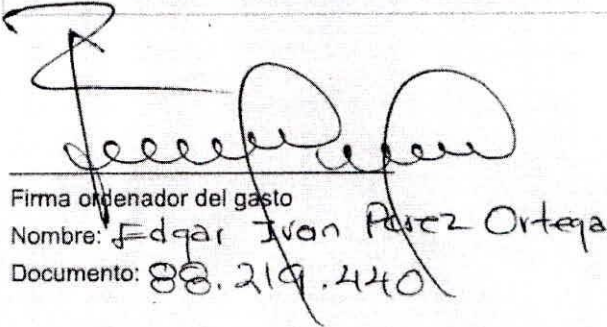 Firma ordenador del gasto
Nombre: Edgar Ivan Perez Ortega
Documento: 88.219.440